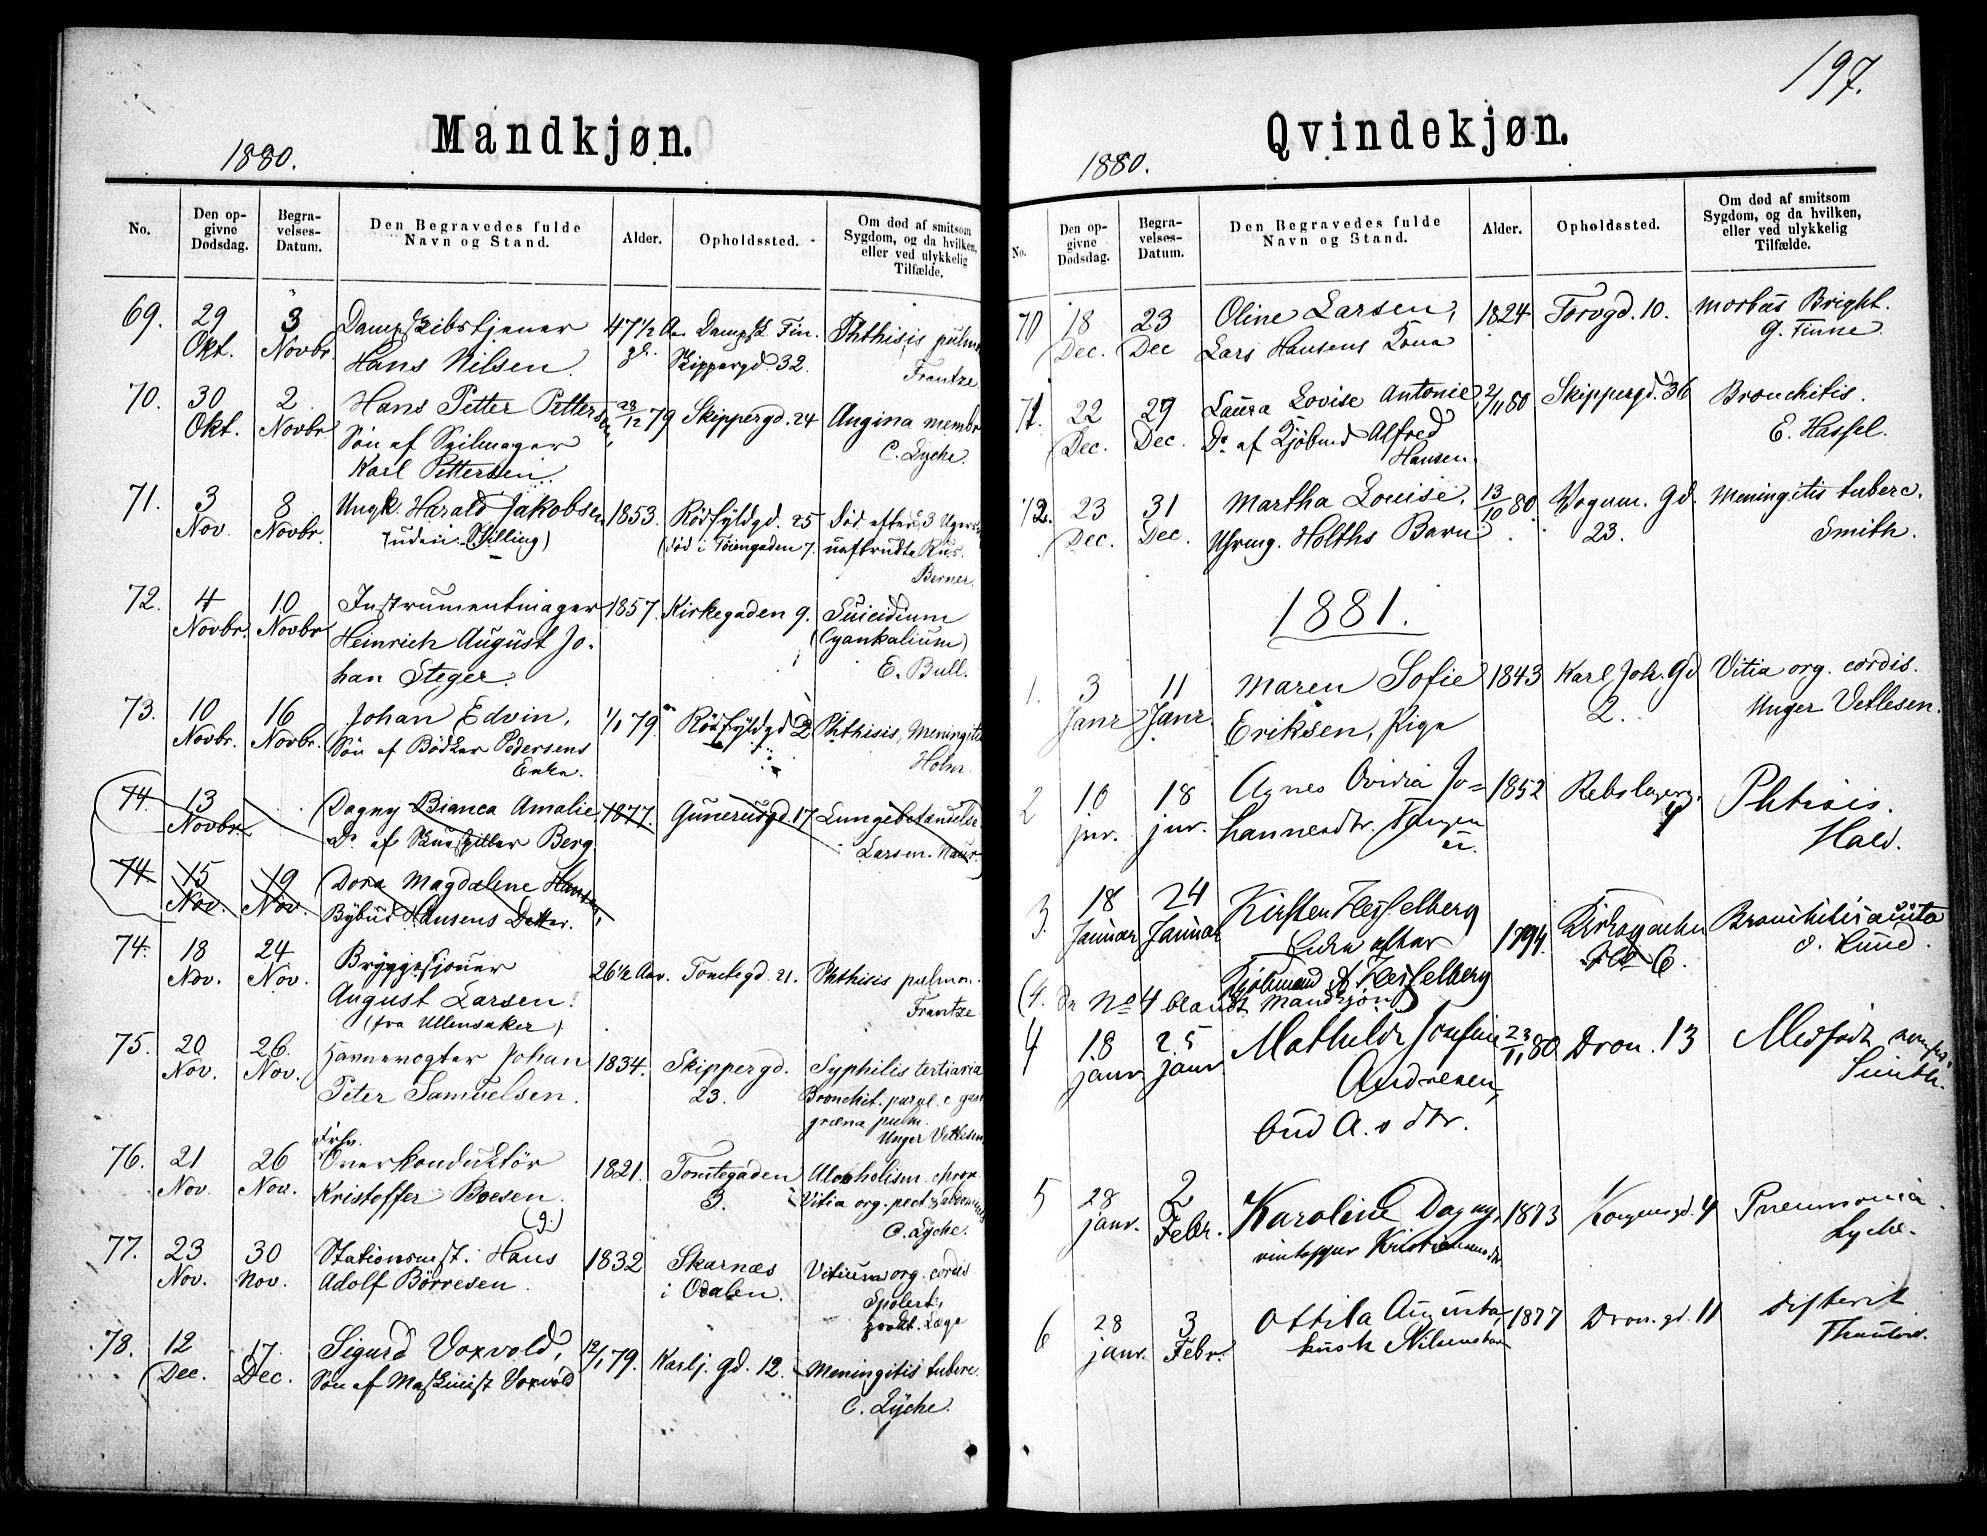 Mandkjøn.
1880.
No.
Den opgivne Dødsdag.
Begravelses-Datum.
Den Begravedes fulde Navn og Stand.
Alder.
Opholdssted.
Om død af smitsom Sygdom, og da hvilken, eller ved ulykkelig Tilfælde.
69. 29 3 Dampskibstjener 47½ Aar Dampsk. Fin. Phthisis pulm.
Okt. Novbr. Hans Nilsen gl. Skippergd. 32. Frantze
70. 30 2 Hans Petter Pettersen, 28/12 79 Skippergd. 24 Angina membr.
Okt. Novbr. Søn af Seilmager C. Lyche.
Karl Pettersen.
71. 3 8 Ungk. Harald Jakobsen 1853. Rödfyldgd. 25 Död efter 3 Ugers
Nov. Novbr. (uden Stilling) (död i Töiengaden 7. uafbrudte Rus.
Berner.
72. 4 10 Instrumentmager 1857. Kirkegaden 9. Suicidium
Novbr. Novbr Heinrich August Jo- (Cyankalium)
han Steger. E. Bull.
73. 10 16 Johan Edvin, 1/1 79. Rödfyldgd 2 Phthisis, Meningitis
Novbr. Novbr. Søn af Bödker Pedersens Holm.
Enke.
74. 13 Dagny Bianca Amalie 1877. Gunerusgd. 17 Lungebetændelse
Novbr. Dr. af Skuespiller Berg. Larsen
74. 15 19 Dora Magdalene Hansen,
Nov. Nov. Bybud Hansens Datter.
74. 18 24 Bryggesjouer 26½ Aar. Tomtegd. 21. Phthisis pulmon.
Nov. Nov. August Larsen. Frantze
(fra Ullensaker)
75. 20 26. Havnevogter Johan 1834. Skippergd. Syphilis tertiaria
Nov. Nov. Peter Samuelsen. 23. Bronchit. purul. c gan
græna pulm.
Unger Vetlesen
Frhv.
76. 21 26 Overkonduktör 1821. Tomtegaden Alcoholism. chron.
Nov. Nov. Kristoffer Boesen. 3. Vitia org. pect. & abdominis
(g.) C. Lyche.
77. 23 30 Stationsmst. Hans 1832 Skarnæs Vitium org. cordis
Nov. Nov. Adolf Börresen i Odalen.
prakt. Læge
78. 12 17. Sigurd Voxvold, 12/1 79. Karlj. Gd. 12. Meningitis tuberc.
Dec. Dec. Søn af Maskinist Voxvold C. Lyche.
197.
Qvindekjøn.
1880.
No.
Den opgivne Dødsdag.
Begravelses-Datum.
Den Begravedes fulde Navn og Stand.
Alder.
Opholdssted.
Om død af smitsom Sygdom, og da hvilken, eller ved ulykkelig Tilfælde.
70 18 23 Oline Larsen, 1824 Torvgd. 10. Morbus Bright.
Dec. Dec Lars Hansens Kone G. Finne.
71. 22 29 Laura Lovise Antonie 2/11 80 Skippergd. 36 Bronchitis.
Dec. Dec. Dr. af Kjöbmd Alfred E. Hassel.
Hansen.
72. 23 31 Martha Louise, 13/10 80. Vognm. Gd. Meningitis tuberc.
Dec. Dec. Uhrmg. Holths Barn 23. Smith.
1881.
1. 3 11 Maren Sofie 1843 Karl Joh. Gd Vitia org. cordis.
Janr Janr Eriksen, Pige 2. Unger Vetlesen.
2 10 18 Agnes Ovidia Jo= 1852 Rebslagerg. Phtisis.
jnr. jnr. hannesdtr. Tangen 4 Hald.
3. 18 24 Kirsten Hesselberg 1794. Kirkegaden Bronchitis acuta
Januar Januar Enke efter No 6. O. Lund.
Kjöbmand A Hesselberg
(4. Se No 4 blandt Mandkjön)
4 18 25 Mathilde Josefine 23/11 80 Dron. 13 Medfödt
janr janr Andresen, Smith.
bud A.s dtr.
5 28 2 Karoline Dagny, 1873 Kongensgd. 4 Pneumonia.
janr. Febr. vintapper Kristiansens dtr Lyche.
6 28 3 Ottila Augusta, 1877 Dron. gd. 11 difterit
janr. Febr. kusk Nilsens barn